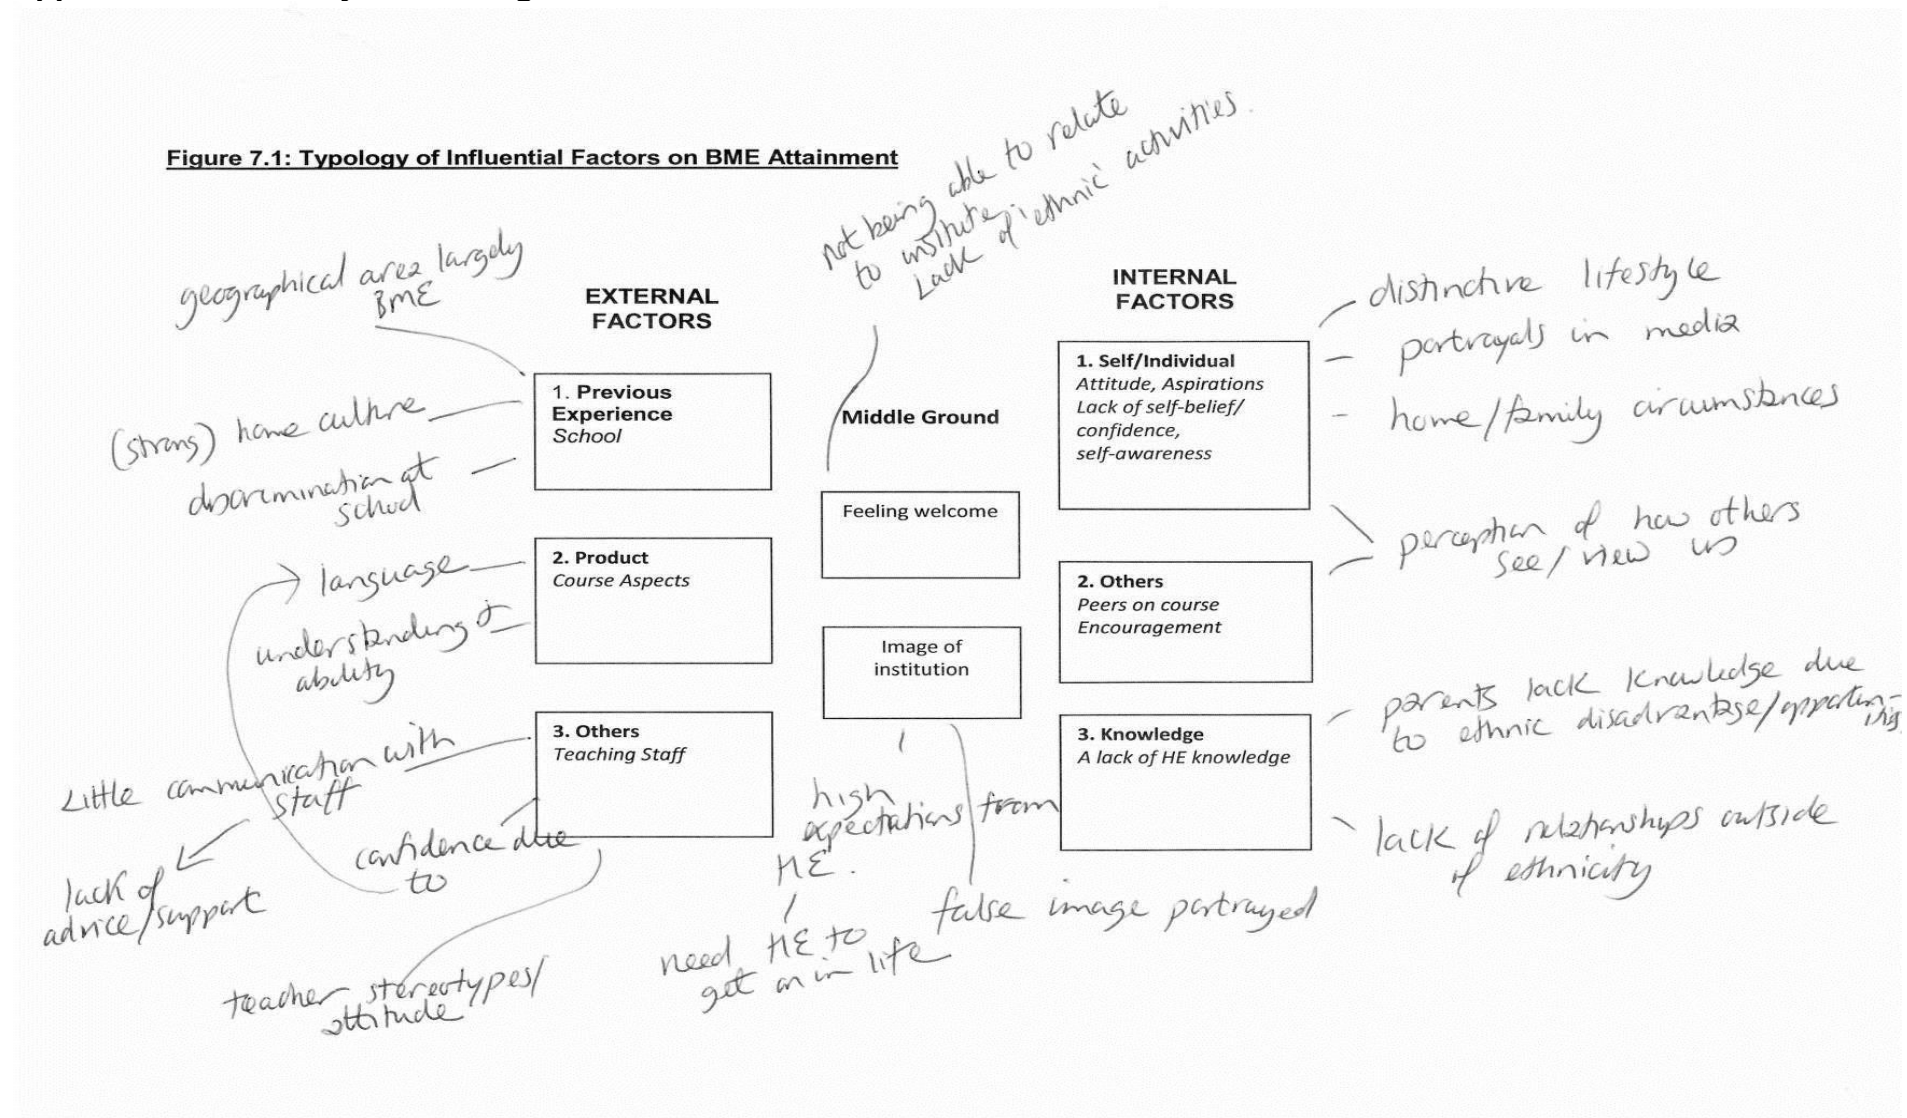 Figure 7.1: Typology of Influential Factors on BME Attainment
not being able to relate
to institute
Lack of 'ethnic' activities.
geographical area largely
BME
(strong) home culture
discrimination at
school
language
understanding of
ability
Little communication with
staff
lack of
advice/support
confidence due
to
teacher stereotypes/
attitude
EXTERNAL
FACTORS
1. Previous
Experience
School
2. Product
Course Aspects
3. Others
Teaching Staff
Middle Ground
Feeling welcome
Image of
institution
high
expectations from
HE.
need HE to
get on in life
false image portrayed
INTERNAL
FACTORS
1. Self/Individual
Attitude, Aspirations
Lack of self-belief/
confidence,
self-awareness
2. Others
Peers on course
Encouragement
3. Knowledge
A lack of HE knowledge
distinctive lifestyle
portrayals in media
home/family circumstances
perception of how others
see/view us
parents lack knowledge due
to ethnic disadvantage/
lack of relationships outside
of ethnicity